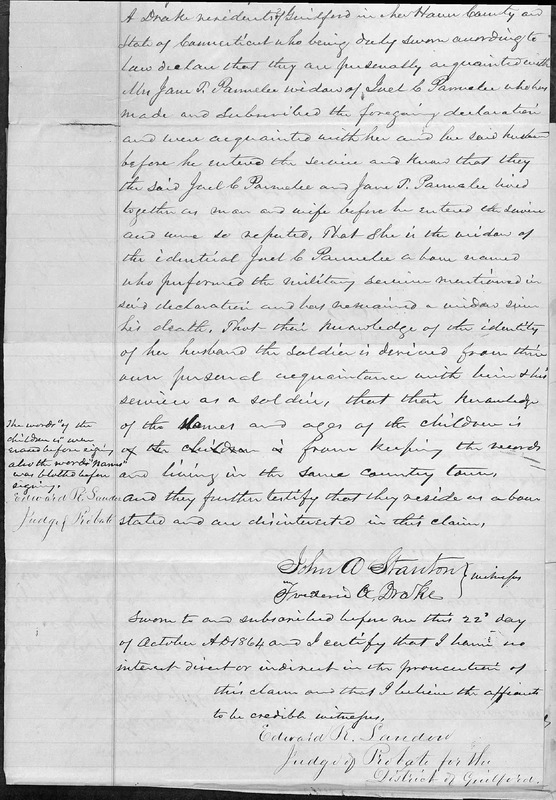 A Drake residents of Guilford in New Haven County and
State of Connecticut who being duly sworn according to
law declare that they are personally acquainted with
Mrs Jane T. Parmelee widow of Joel C Parmelee who has
made and subscribed the foregoing declaration
and were acquainted with her and her said husband
before he entered the service and know that they
the said Joel C Parmelee and Jane T. Parmelee lived
together as man and wife before he entered the service
and were so reputed, That she is the widow of
the identical Joel C Parmelee above named
who performed the military service mentioned in
said declaration and has remained a widow since
his death, That their knowledge of the identity
of her husband the soldier is derived from their
own personal acquaintance with him & his
service as a soldier, that their knowledge
of the Names and ages of the children is
of the children is from keeping the records
and living in the same country town,
and they further testify that they reside as above
stated and are disinterested in this claim,
The words "of the
children is" were
erased before signing
also the word "Names"
was blotted before
signing.
Edward R. Landon
Judge of Probate
John A Stanton
Frederic A. Drake
} witnesses
Sworn to and subscribed before me this 22d day
of October AD 1864 and I certify that I have no
interest direct or indirect in the prosecution of
this claim and that I believe the affiants
to be credible witnesses.
Edward R. Landon
Judge of Probate for the
District of Guilford.